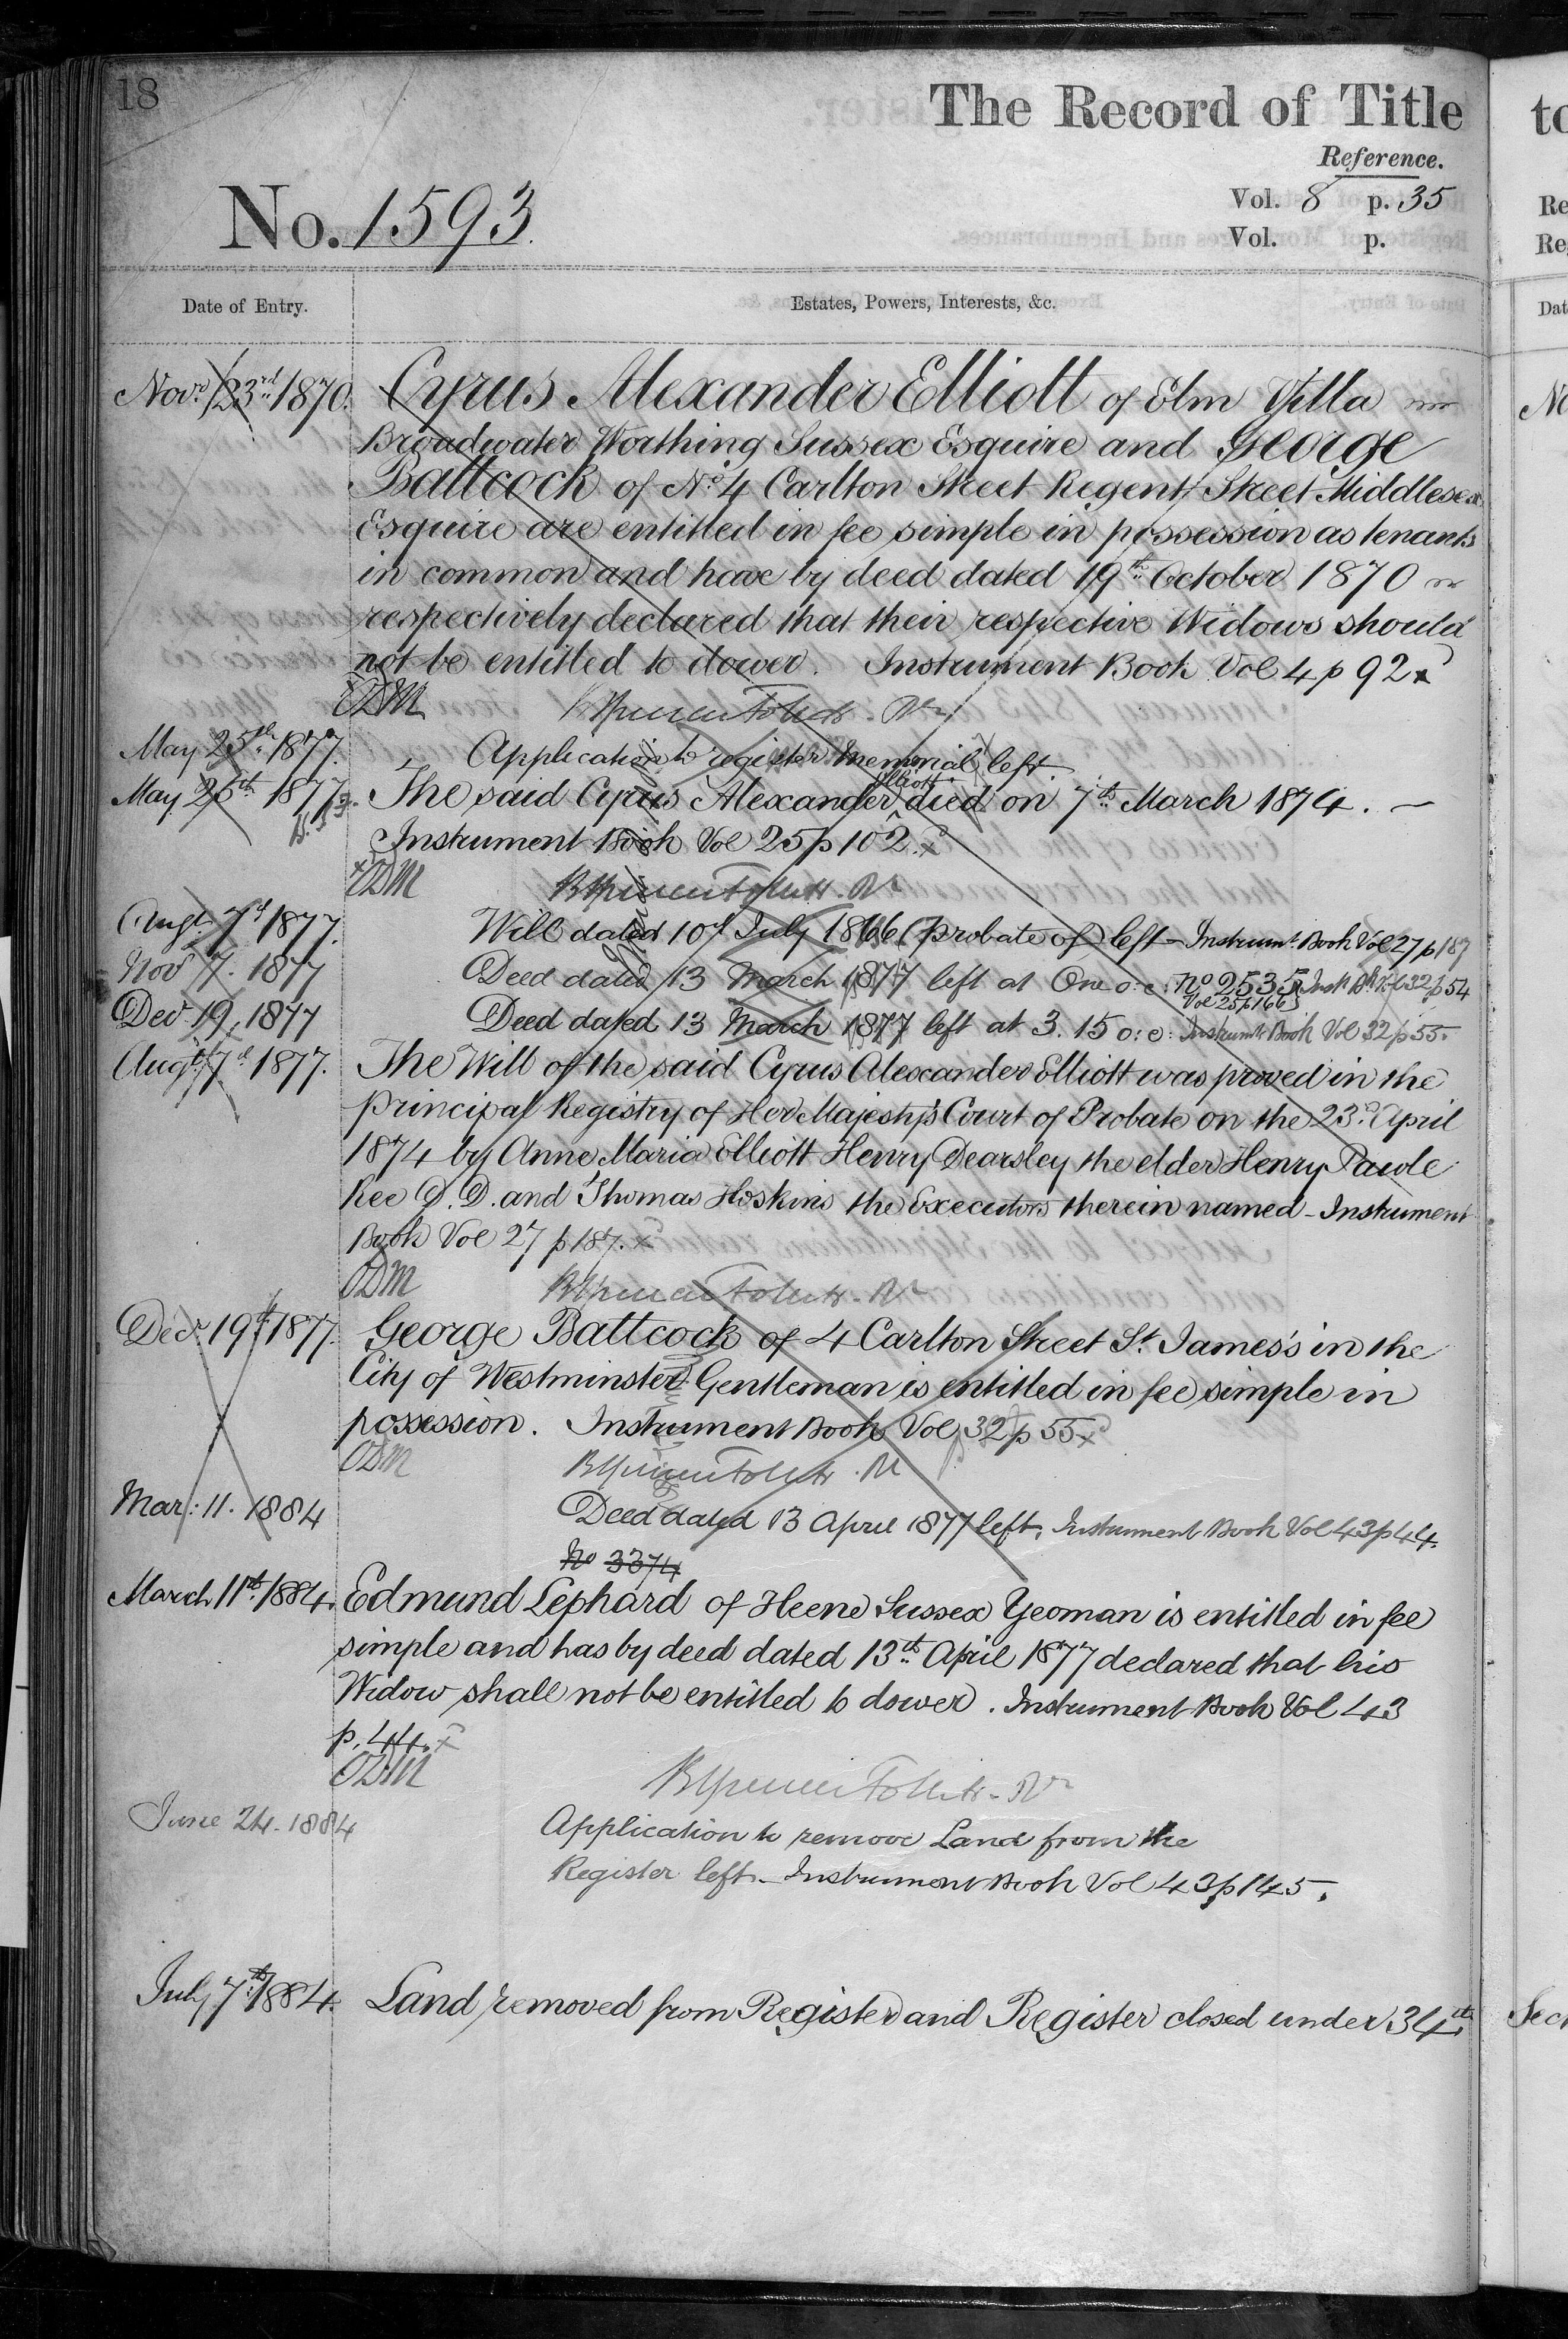 18
The Record of Title
Reference.
No. 1593.
Vol. 8 p. 35
Vol. p.
Date of Entry.
Estates, Powers, Interests, &c.
Novr. 23rd 1870. Cyrus Alexander Elliott of Elm Villa
Broadwater Worthing Sussex Esquire and George
Battcock of No. 4 Carlton Street Regent Street Middlesex
Esquire are entitled in fee simple in possession as tenants
in common and have by deed dated 19th October 1870
respectively declared that their respective Widows should
not be entitled to dower. Instrument Book Vol 4 p 92 x
ODM
May 25th 1877. Application to register Memorial left
May 25th 1877. The said Cyrus Alexander Elliott died on 7th March 1874.
Instrument Book Vol 25 p 102 x
ODM
Augt. 7th 1877. Will dated 10th July 1866 (Probate of) left - Instrumt. Book Vol 27 p 187
Nov 7. 1877 Deed dated 13 March 1877 left at One o: c: No 2535 Inst. Bk. Vol 32 p 54
Vol 25 p 166
Dec 19, 1877 Deed dated 13 March 1877 left at 3. 15 o: c: Instrumt. Book Vol 32 p 55.
Augt. 7th 1877. The Will of the said Cyrus Alexander Elliott was proved in the
principal Registry of Her Majesty's Court of Probate on the 23d. April
1874 by Anne Maria Elliott Henry Dearsley the elder Henry Pawle
Kee D. D. and Thomas Hoskins the Executors therein named - Instrument
Book Vol 27 p 187. x
ODM
Decr. 19th 1877. George Battcock of 4 Carlton Street St. James's in the
City of Westminster Gentleman is entitled in fee simple in
possession. Instrument Book Vol 32 p 55 x
ODM
Mar: 11. 1884 Deed dated 13 April 1877 left, Instrument Book Vol 43 p 44.
No 3374
March 11th 1884. Edmund Lephard of Heene Sussex Yeoman is entitled in fee
simple and has by deed dated 13th April 1877 declared that his
Widow shall not be entitled to dower. Instrument Book Vol 43
p. 44. x
ODM
June 24. 1884 Application to remove Land from the
Register left - Instrument Book Vol 43 p 145.
July 7th 1884. Land removed from Register and Register closed under 34th